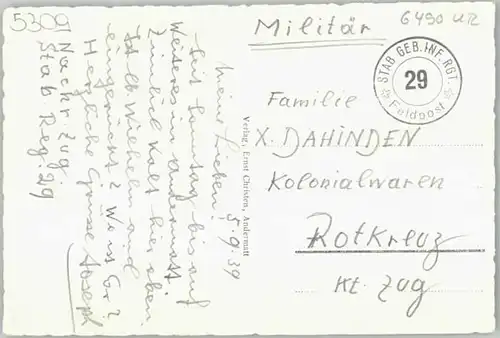 5309
Militär
6490 UR
STAB GEB. INF. RGT.
29
Feldpost
Familie
X. DAHINDEN
Kolonialwaren
Rotkreuz
Kt. Zug
Verlag, Ernst Christen, Andermatt
5.9.39
Meine Lieben!
Seit Samstag bis auf
Weiteres in Andermatt.
Ziemlich kalt hier oben.
Ist Wilhelm auch
eingerückt? Weiss
Herzliche Grüsse Joseph
Nachr. Zug
Stab Reg. 29